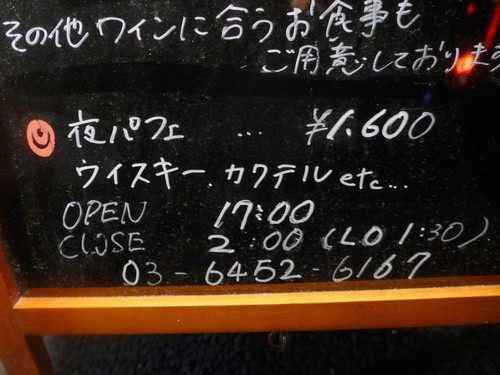 その他ワインに合うお食事も
ご用意しております
夜パフェ … ¥1.600
ウイスキー、カクテル etc...
OPEN 17:00
CLOSE 2:00 (LO 1:30)
03-6452-6167